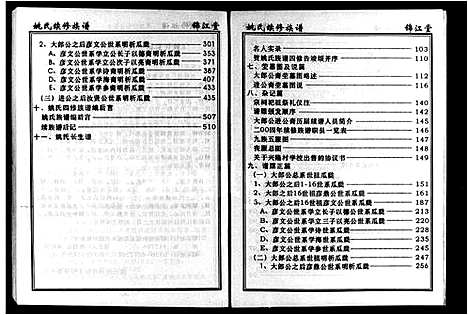 姚氏续修族谱
锦江堂
2、大郎公之后彦文公世系明析瓜瓞 301
A、彦文公世系学立公长子以德裔明析瓜瓞 321
B、彦文公世系学立公次子以亮裔明析瓜瓞 333
C、彦文公世系学诗裔明析瓜瓞 353
D、彦文公世系学海裔明析瓜瓞 407
E、彦文公世系学参裔明析瓜瓞 433
(三)进公之后汝贤公世系明析瓜瓞 435
十、姚氏四修族谱编后言
姚氏族谱编后言 507
续族谱后记 510
十一、姚氏长生谱
姚氏续修族谱
锦江堂
名人实录 103
贺姚氏族谱四修告竣颂并序 110
七、茔墓图及说篇
大郎公裔茔墓图略述 112
进公裔茔墓图说 112
八、杂记篇
宗祠祀祖祭礼仪注 117
谱牒颁发顺序 118
大郎公进公裔历届续谱人员简介 120
二00四年续修族谱职员一览表 131
九族五服图 132
丧服总图 132
关于兴隆村学校出售的协议书 148
九、谱牒正篇
(一)大郎公总系世祖瓜瓞
1、大郎公之后1-16世系瓜瓞 151
2、大郎公之后16世祖彦鼎公世系瓜瓞 161
3、大郎公之后16世祖彦文公世系瓜瓞 187
A、彦文公世系学立公长子以德公世系瓜瓞 213
B、彦文公世系学立公三子以亮公世系瓜瓞 220
C、彦文公世系学诗世系瓜瓞 228
D、彦文公世系学海世系瓜瓞 238
E、彦文公世系学参世系瓜瓞 245
(二)大郎公总系世祖明析瓜瓞 247
1、大郎公之后彦鼎公世系明析瓜瓞 256